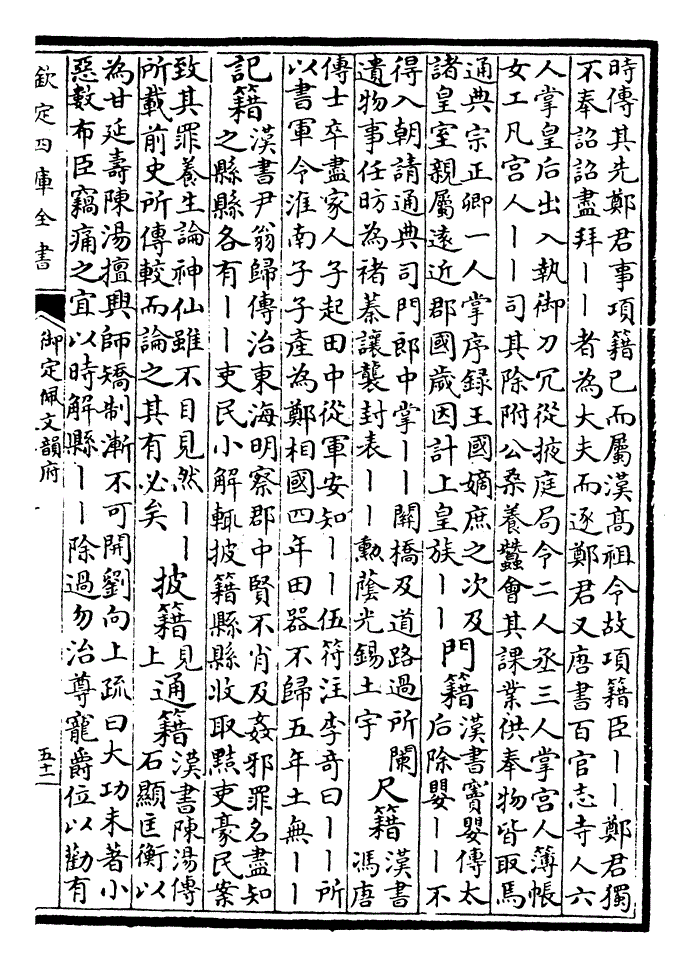 時傳其先鄭君事項籍已而屬漢髙祖令故項籍臣丨丨鄭君獨
不奉詔詔盡拜丨丨者為大夫而逐鄭君又唐書百官志寺人六
人掌皇后出入執御刀冗從掖庭局令二人丞三人掌宫人簿帳
女工凡宫人丨丨司其除附公桑養蠶會其課業供奉物皆取焉
通典宗正卿一人掌序録王國嫡庶之次及
諸皇室親屬逺近郡國歲因計上皇族丨丨
門籍
漢書竇嬰傳太
后除嬰丨丨不
得入朝請通典司門郎中掌丨丨闗橋及道路過所闌
遺物事任昉為褚蓁讓襲封表丨丨勲蔭光錫土宇
尺籍
漢書
馮唐
傳士卒盡家人子起田中從軍安知丨丨伍符注李竒曰丨丨所
以書軍令淮南子子產為鄭相國四年田器不歸五年土無丨丨
記籍
漢書尹翁歸傳治東海明察郡中賢不肖及姦邪罪名盡知
之縣縣各有丨丨吏民小解輒披籍縣縣收取黠吏豪民案
致其罪養生論神仙雖不目見然丨丨
所載前史所傳較而論之其有必矣
披籍
見
上
通籍
漢書陳湯傳
石顯匡衡以
為甘延壽陳湯擅興師矯制漸不可開劉向上疏曰大功未著小
惡數布臣竊痛之宜以時解縣丨丨除過勿治尊寵爵位以勸有
欽定四庫全書
御定佩文韻府
五十一